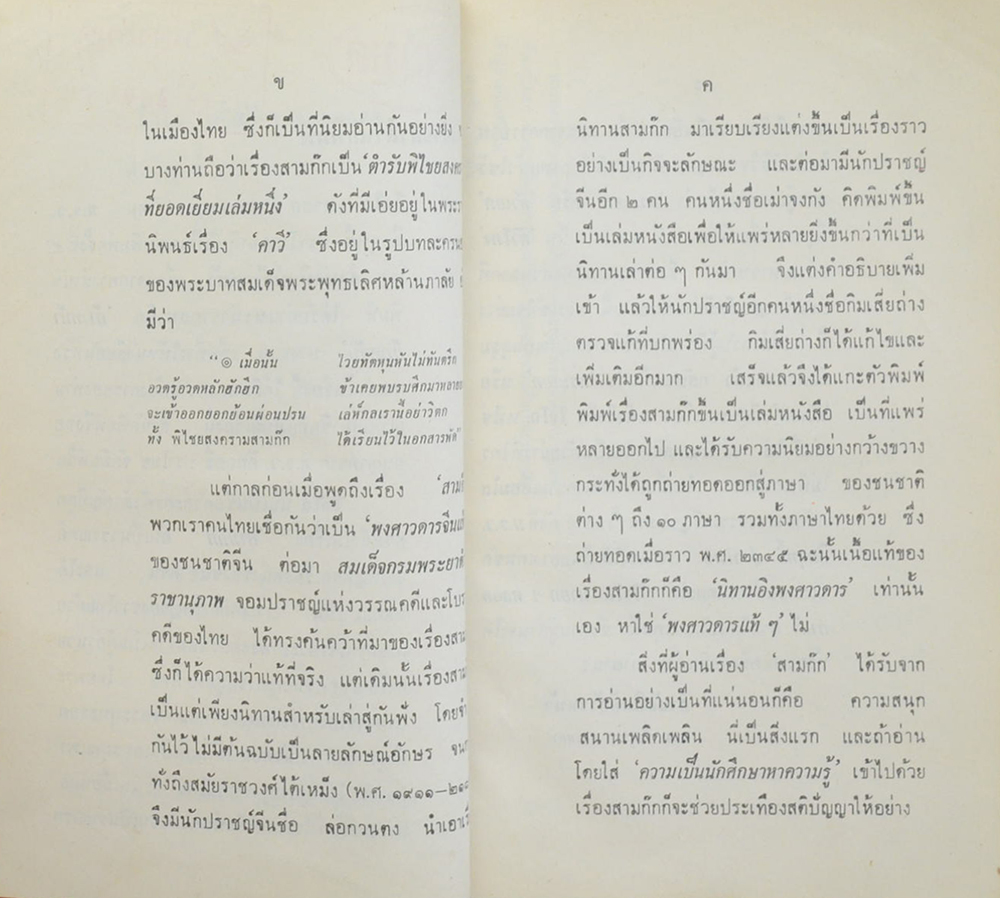 ข
ในเมืองไทย ซึ่งก็เป็นที่นิยมอ่านกันอย่างยิ่ง
บางท่านถือว่าเรื่องสามก๊กเป็น ‘ตำรับพิไชยสงคร
ที่ยอดเยี่ยมเล่มหนึ่ง’ ดังที่มีเอ่ยอยู่ในพระร
นิพนธ์เรื่อง ‘คาวี’ ซึ่งอยู่ในรูปบทละคร
ของพระบาทสมเด็จพระพุทธเลิศหล้านภาลัย
มีว่า
“๏ เมื่อนั้น ไวยทัตหุนหันไม่ทันตรึก
อวดรู้อวดหลักฮักฮึก ข้าเคยพบรบศึกมาหลาย
จะเข้าออกยอกย้อนผ่อนปรน เล่ห์กลเรานี้อย่าวิตก
ทั้ง พิไชยสงครามสามก๊ก ได้เรียนไว้ในอก
แต่กาลก่อนเมื่อพูดถึงเรื่อง ‘สาม
พวกเราคนไทยเชื่อกันว่าเป็น ‘พงศาวดารจีน
ของชนชาติจีน ต่อมา สมเด็จกรมพระยา
ราชานุภาพ จอมปราชญ์แห่งวรรณคดีและโบร
คดีของไทย ได้ทรงค้นคว้าที่มาของเรื่องสาม
ซึ่งก็ได้ความว่าแท้ที่จริง แต่เดิมนั้นเรื่องสาม
เป็นแต่เพียงนิทานสำหรับเล่าสู่กันฟัง โดย
กันไว้ ไม่มีต้นฉบับเป็นลายลักษณ์อักษร จน
ทั่งถึงสมัยราชวงศ์ไต้เหม็ง (พ.ศ. ๑๙๑๑—๒๑
จึงมีนักปราชญ์จีนชื่อ ล่อกวนตง นำเอา
ค
นิทานสามก๊ก มาเรียบเรียงแต่งขึ้นเป็นเรื่องราว
อย่างเป็นกิจจะลักษณะ และต่อมามีนักปราชญ์
จีนอีก ๒ คน คนหนึ่งชื่อเม่าจงกัง คิดพิมพ์ขึ้น
เป็นเล่มหนังสือเพื่อให้แพร่หลายยิ่งขึ้นกว่าที่เป็น
นิทานเล่าต่อ ๆ กันมา จึงแต่งคำอธิบายเพิ่ม
เข้า แล้วให้นักปราชญ์อีกคนหนึ่งชื่อกิมเสี่ยถ่าง
ตรวจแก้ที่บกพร่อง กิมเสี่ยถ่างก็ได้แก้ไขและ
เพิ่มเติมอีกมาก เสร็จแล้วจึงได้แกะตัวพิมพ์
พิมพ์เรื่องสามก๊กขึ้นเป็นเล่มหนังสือ เป็นที่แพร่
หลายออกไป และได้รับความนิยมอย่างกว้างขวาง
กระทั่งได้ถูกถ่ายทอดออกสู่ภาษา ของชนชาติ
ต่าง ๆ ถึง ๑๐ ภาษา รวมทั้งภาษาไทยด้วย ซึ่ง
ถ่ายทอดเมื่อราว พ.ศ. ๒๓๔๕ ฉะนั้นเนื้อแท้ของ
เรื่องสามก๊กก็คือ ‘นิทานอิงพงศาวดาร’ เท่านั้น
เอง หาใช่ ‘พงศาวดารแท้ ๆ’ ไม่
สิ่งที่ผู้อ่านเรื่อง ‘สามก๊ก’ ได้รับจาก
การอ่านอย่างเป็นที่แน่นอนก็คือ ความสนุก
สนานเพลิดเพลิน นี่เป็นสิ่งแรก และถ้าอ่าน
โดยใส่ ‘ความเป็นนักศึกษาหาความรู้’ เข้าไปด้วย
เรื่องสามก๊กก็จะช่วยประเทืองสติปัญญาให้อย่าง